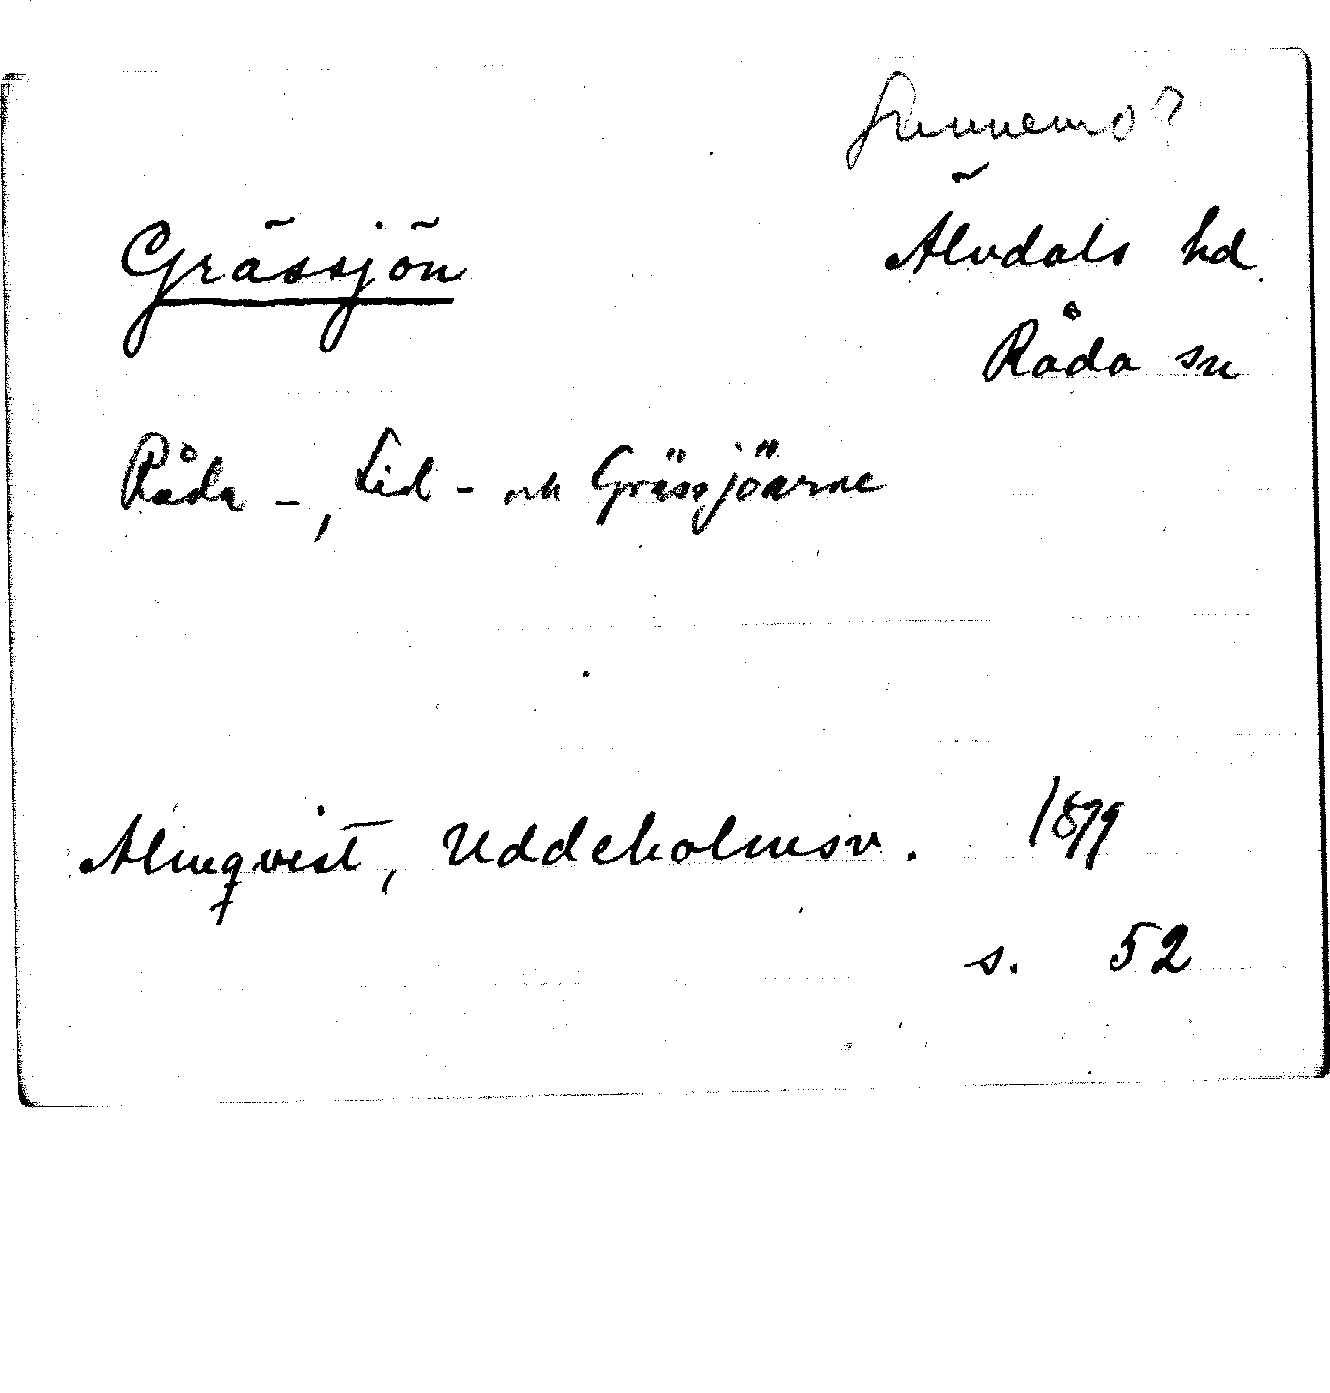 Sunnemo?
Grässjön
Älvdals hd
Råda sn
Råda-, Lid- och Grässjöarne
Almqvist, Uddeholmsv. 1899
s. 52